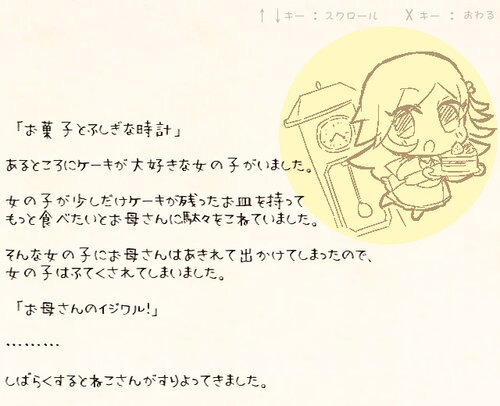 ↑↓キー：スクロール　Xキー：おわる
「お菓子とふしぎな時計」
あるところにケーキが大好きな女の子がいました。
女の子が少しだけケーキが残ったお皿を持って
もっと食べたいとお母さんに駄々をこねていました。
そんな女の子にお母さんはあきれて出かけてしまったので、
女の子はふてくされてしまいました。
「お母さんのイジワル！」
………
しばらくするとねこさんがすりよってきました。